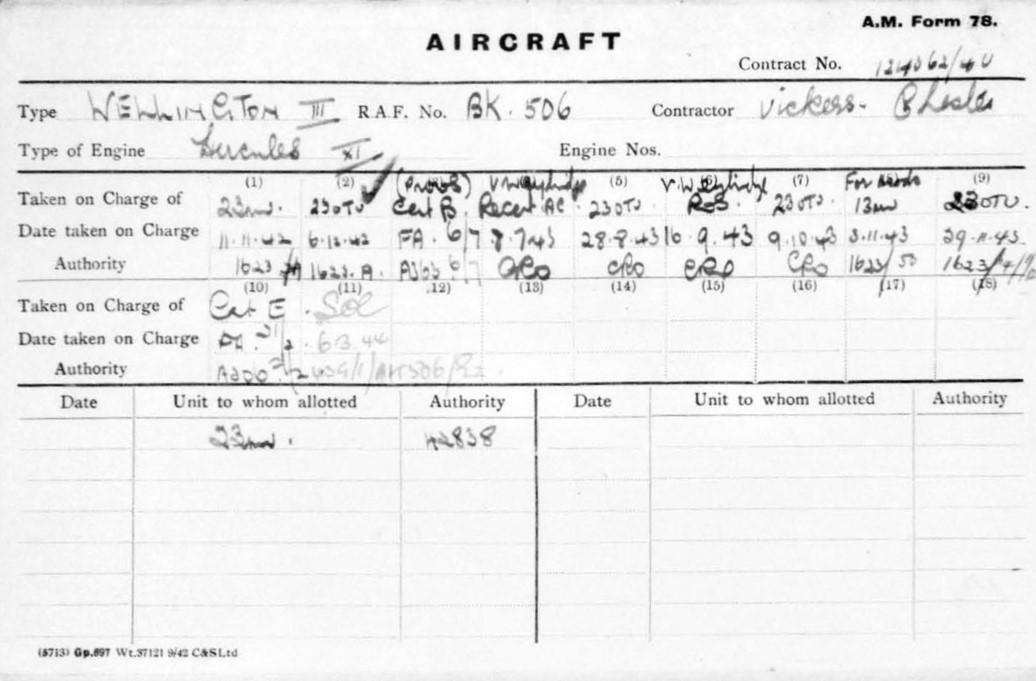 A.M. Form 78.
AIRCRAFT
Contract No.
Type WELLINGTON III R.A.F. No. BK. 506 Contractor Vickers- Chester
Type of Engine Hercules XI Engine Nos.
(1) (2) (5) (6) (7) (9)
Taken on Charge of 23mu. 23OTU Cat B. Recat AC 23OTU ROS. 23OTU. 13mu 23OTU.
Date taken on Charge 11.11.42 6.12.42 FA. 6/7 8.7.43 28.8.43 16.9.43 9.10.43 3.11.43 29.11.43
Authority 1623 1623.A. 6/7 CRO CRO CRO CRO 1623/ 1623/
(10) (11) (12) (13) (14) (15) (16) (17) (18)
Taken on Charge of Cat E. SOC
Date taken on Charge FA. 6.3.44
Authority
Date Unit to whom allotted Authority Date Unit to whom allotted Authority
23mu. 42838
(5713) Gp.697 Wt.37121 9/42 C&SLtd